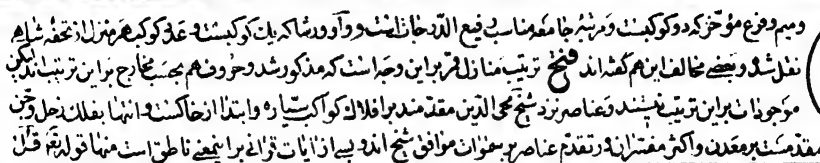 ومیم و فرع مؤخر که دو کوکبست و مرتبهٔ جامعه مناسب رفیع الدرجات است و واو و رشا که یك کوکبست و عدد کوکب هر منزل از تحفه شاهی
نقل شد و بعضی مخالف این هم گفته اند فتح ترتیب منازل قمر براین وجه است که مذکور شد و حروف هم بحسب مخارج براین ترتیب اند لیکن
موجودات براین ترتیب نیستند و عناصر نزد شیخ محی الدین مقدمند بر افلاك کواکب سیاره و ابتدا از خاکست و انتها بفلك زحل و جن
مقدمست بر معدن و اکثر مفسران در تقدم عناصر بر سموات موافق شیخ اند و بسی از آیات قرآنی براینمعنی ناطق است منها قوله تعم قل